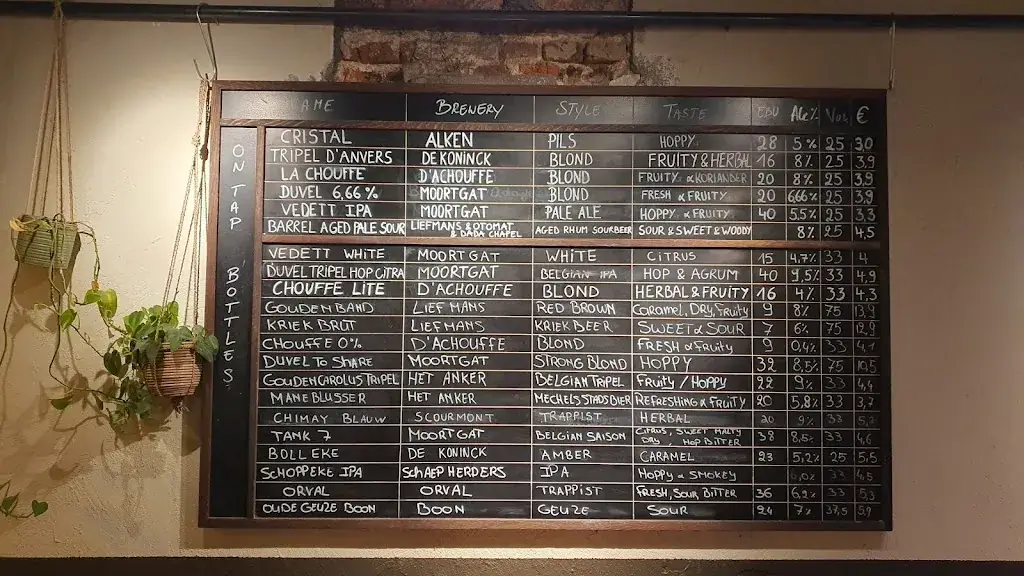 NAME BREWERY STYLE TASTE EBU Alc% €
ON TAP
CRISTAL ALKEN PILS HOPPY 28 5% 25 3,0
TRIPEL D'ANVERS DE KONINCK BLOND FRUITY & HERBAL 16 8% 25 3,9
LA CHOUFFE D'ACHOUFFE BLOND FRUITY & KORIANDER 20 8% 25 3,9
DUVEL 6,66% MOORTGAT BLOND FRESH & FRUITY 20 6,66% 25 3,9
VEDETT IPA MOORTGAT PALE ALE HOPPY & FRUITY 40 5.5% 25 3,3
BARREL AGED PALE SOUR LIEFMANS & OTOMAT & DARK CHAPEL AGED RHUM SOURBEER SOUR & SWEET & WOODY 8% 25 4,5
BOTTLES
VEDETT WHITE MOORTGAT WHITE CITRUS 15 4.7% 33 4
DUVEL TRIPEL HOP CITRA MOORTGAT BELGIAN IPA HOP & AGRUM 40 9,5% 33 4,9
CHOUFFE LITE D'ACHOUFFE BLOND HERBAL & FRUITY 16 4% 33 4,3
GOUDENBAND LIEFMANS RED BROWN Caramel, Dry, Fruity 9 8% 75 13,9
KRIEK BRUT LIEFMANS KRIEK BEER SWEET & SOUR 7 6% 75 12,9
CHOUFFE 0% D'ACHOUFFE BLOND FRESH & Fruity 9 0,4% 33 4,1
DUVEL TO SHARE MOORTGAT STRONG BLOND HOPPY 32 8,5% 75 10,5
GOUDEN CAROLUS TRIPEL HET ANKER BELGIAN TRIPEL Fruity / HOPPY 22 9% 33 4,4
MANEBLUSSER HET ANKER MECHELS STADSBIER REFRESHING & FRUITY 20 5,8% 33 3,7
CHIMAY BLAUW SCOURMONT TRAPPIST HERBAL 20 9% 33
TANK 7 MOORTGAT BELGIAN SAISON CITRUS, SWEET MALTY DRY, HOP BITTER 38 8,5% 33 4,6
BOLLEKE DE KONINCK AMBER CARAMEL 23 5,2% 25 5,5
SCHOPPEKE IPA SCHAEPHERDERS IPA HOPPY & SMOKEY 0,0% 33 4,5
ORVAL ORVAL TRAPPIST FRESH, SOUR BITTER 36 6,2% 33 5,3
OUDE GEUZE BOON BOON GEUZE SOUR 24 7% 37,5 5,9